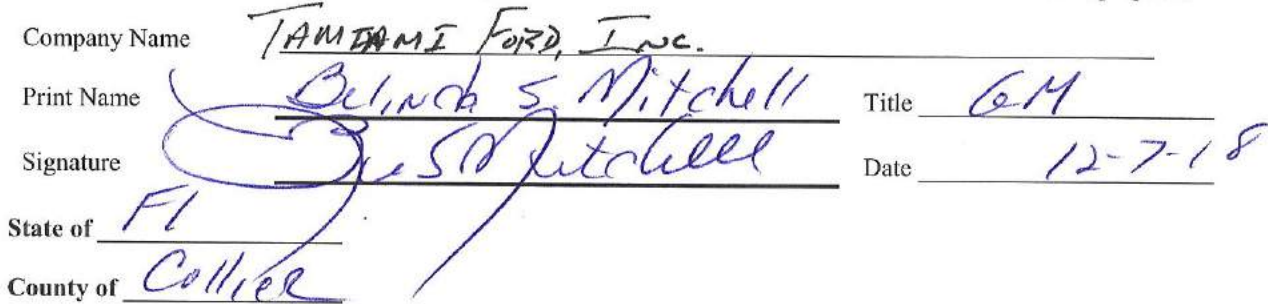 Company Name TAMIAMI FORD, INC.
Print Name Belinda S. Mitchell Title GM
Signature Be S Mitchell Date 12-7-18
State of Fl
County of Collier